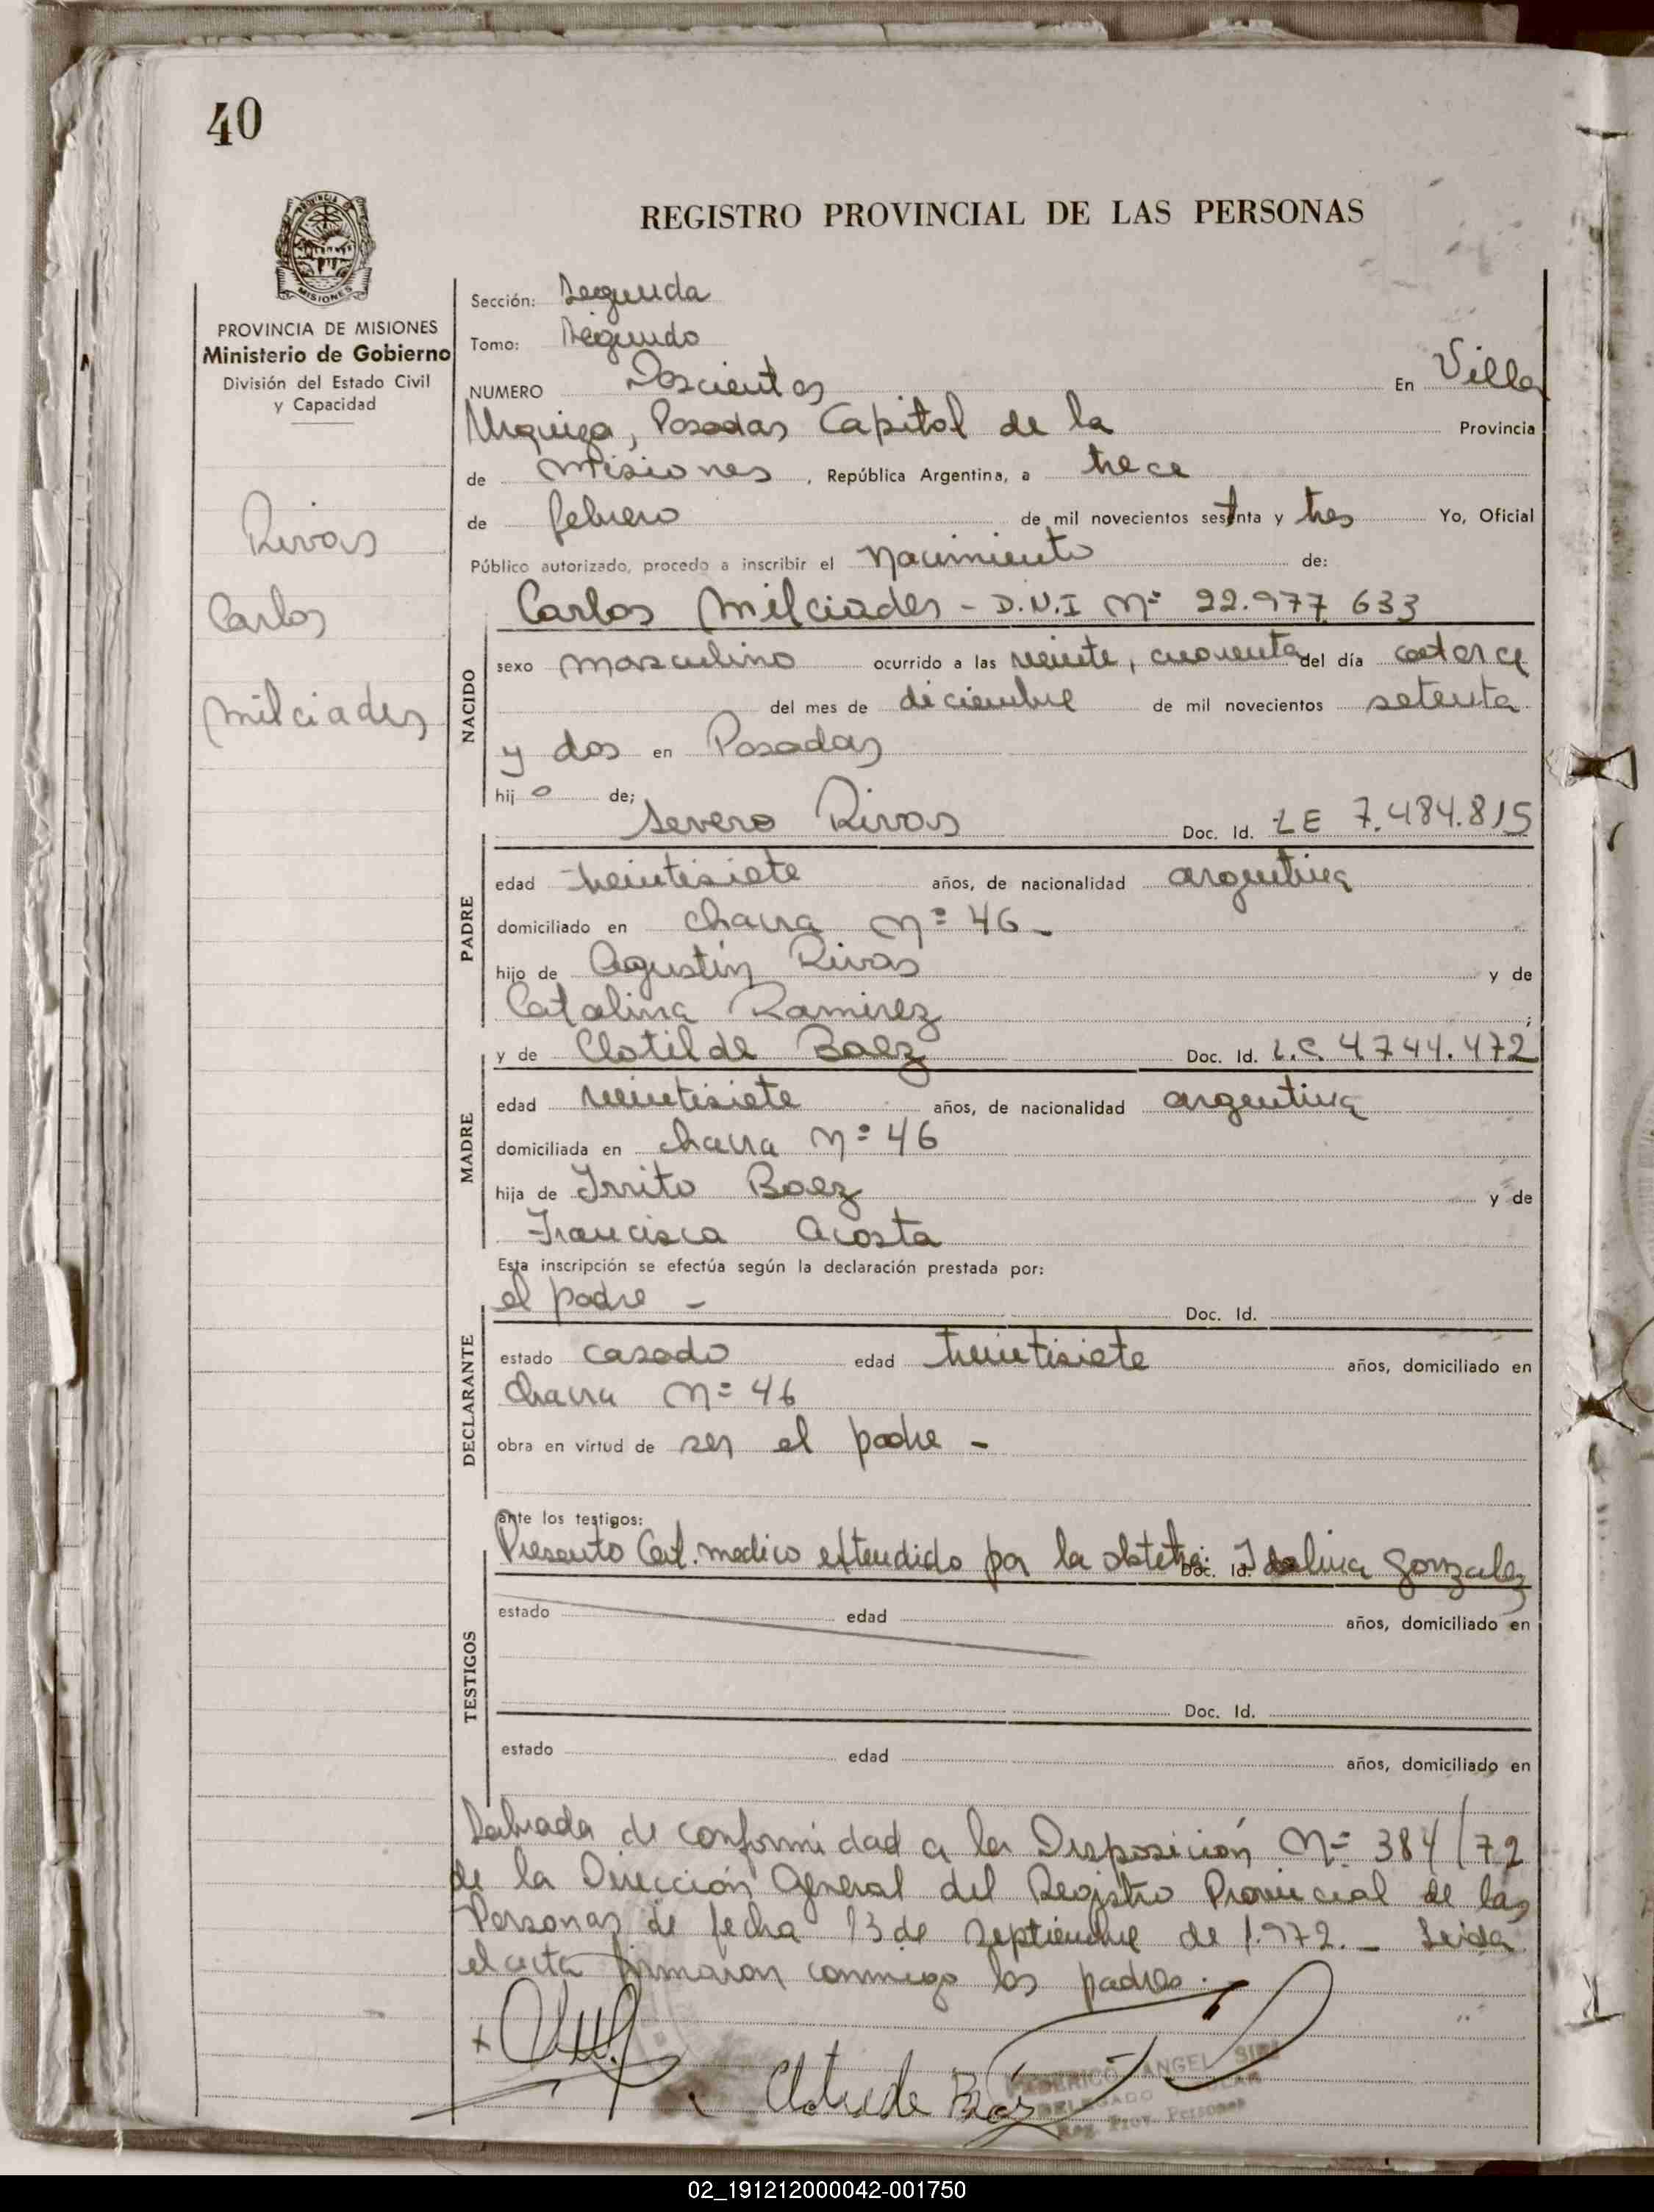 40
REGISTRO PROVINCIAL DE LAS PERSONAS
PROVINCIA DE
MISIONES
PROVINCIA DE MISIONES
Ministerio de Gobierno
División del Estado Civil
y Capacidad
Rivas
Carlos
Milciades
Sección: Segunda
Tomo: Segundo
NUMERO Doscientos En Villa
Urquiza, Posadas Capital de la Provincia
de Misiones, República Argentina, a trece
de febrero de mil novecientos setenta y tres Yo, Oficial
Público autorizado, procedo a inscribir el nacimiento de:
Carlos Milciades - D.N.I Nº 22.977.633
NACIDO
sexo masculino ocurrido a las veinte, cuarenta del día catorce
del mes de diciembre de mil novecientos setenta
y dos en Posadas
hijo de;
Severo Rivas Doc. Id. LE 7.484.815
PADRE
edad treintisiete años, de nacionalidad argentina
domiciliado en chacra Nº 46-
hijo de Agustín Rivas y de
Catalina Ramirez;
y de Clotilde Baez Doc. Id. L.C. 4744.472
MADRE
edad veintisiete años, de nacionalidad argentina
domiciliada en chacra Nº 46
hija de Baez y de
Francisca Acosta
Esta inscripción se efectúa según la declaración prestada por:
el padre - Doc. Id.
DECLARANTE
estado casado edad treintisiete años, domiciliado en
chacra Nº 46
obra en virtud de ser el padre -
ante los testigos:
Presento Cert. medico extendido por la obstetra: Doc. Id. Idalina Gonzalez
TESTIGOS
estado edad años, domiciliado en
Doc. Id.
estado edad años, domiciliado en
Labrada de conformidad a la Disposición Nº 384/72
de la Dirección General del Registro Provincial de las
Personas de fecha 13 de Septiembre de 1.972.- Leida
el acta firmaron conmigo los padres.
Clotilde Baéz
ANGEL
DELEGADO
Reg. Prov. Personas
02_191212000042-001750